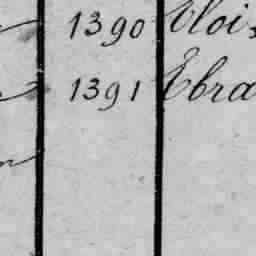 1390 Eloi
1391 Ebra